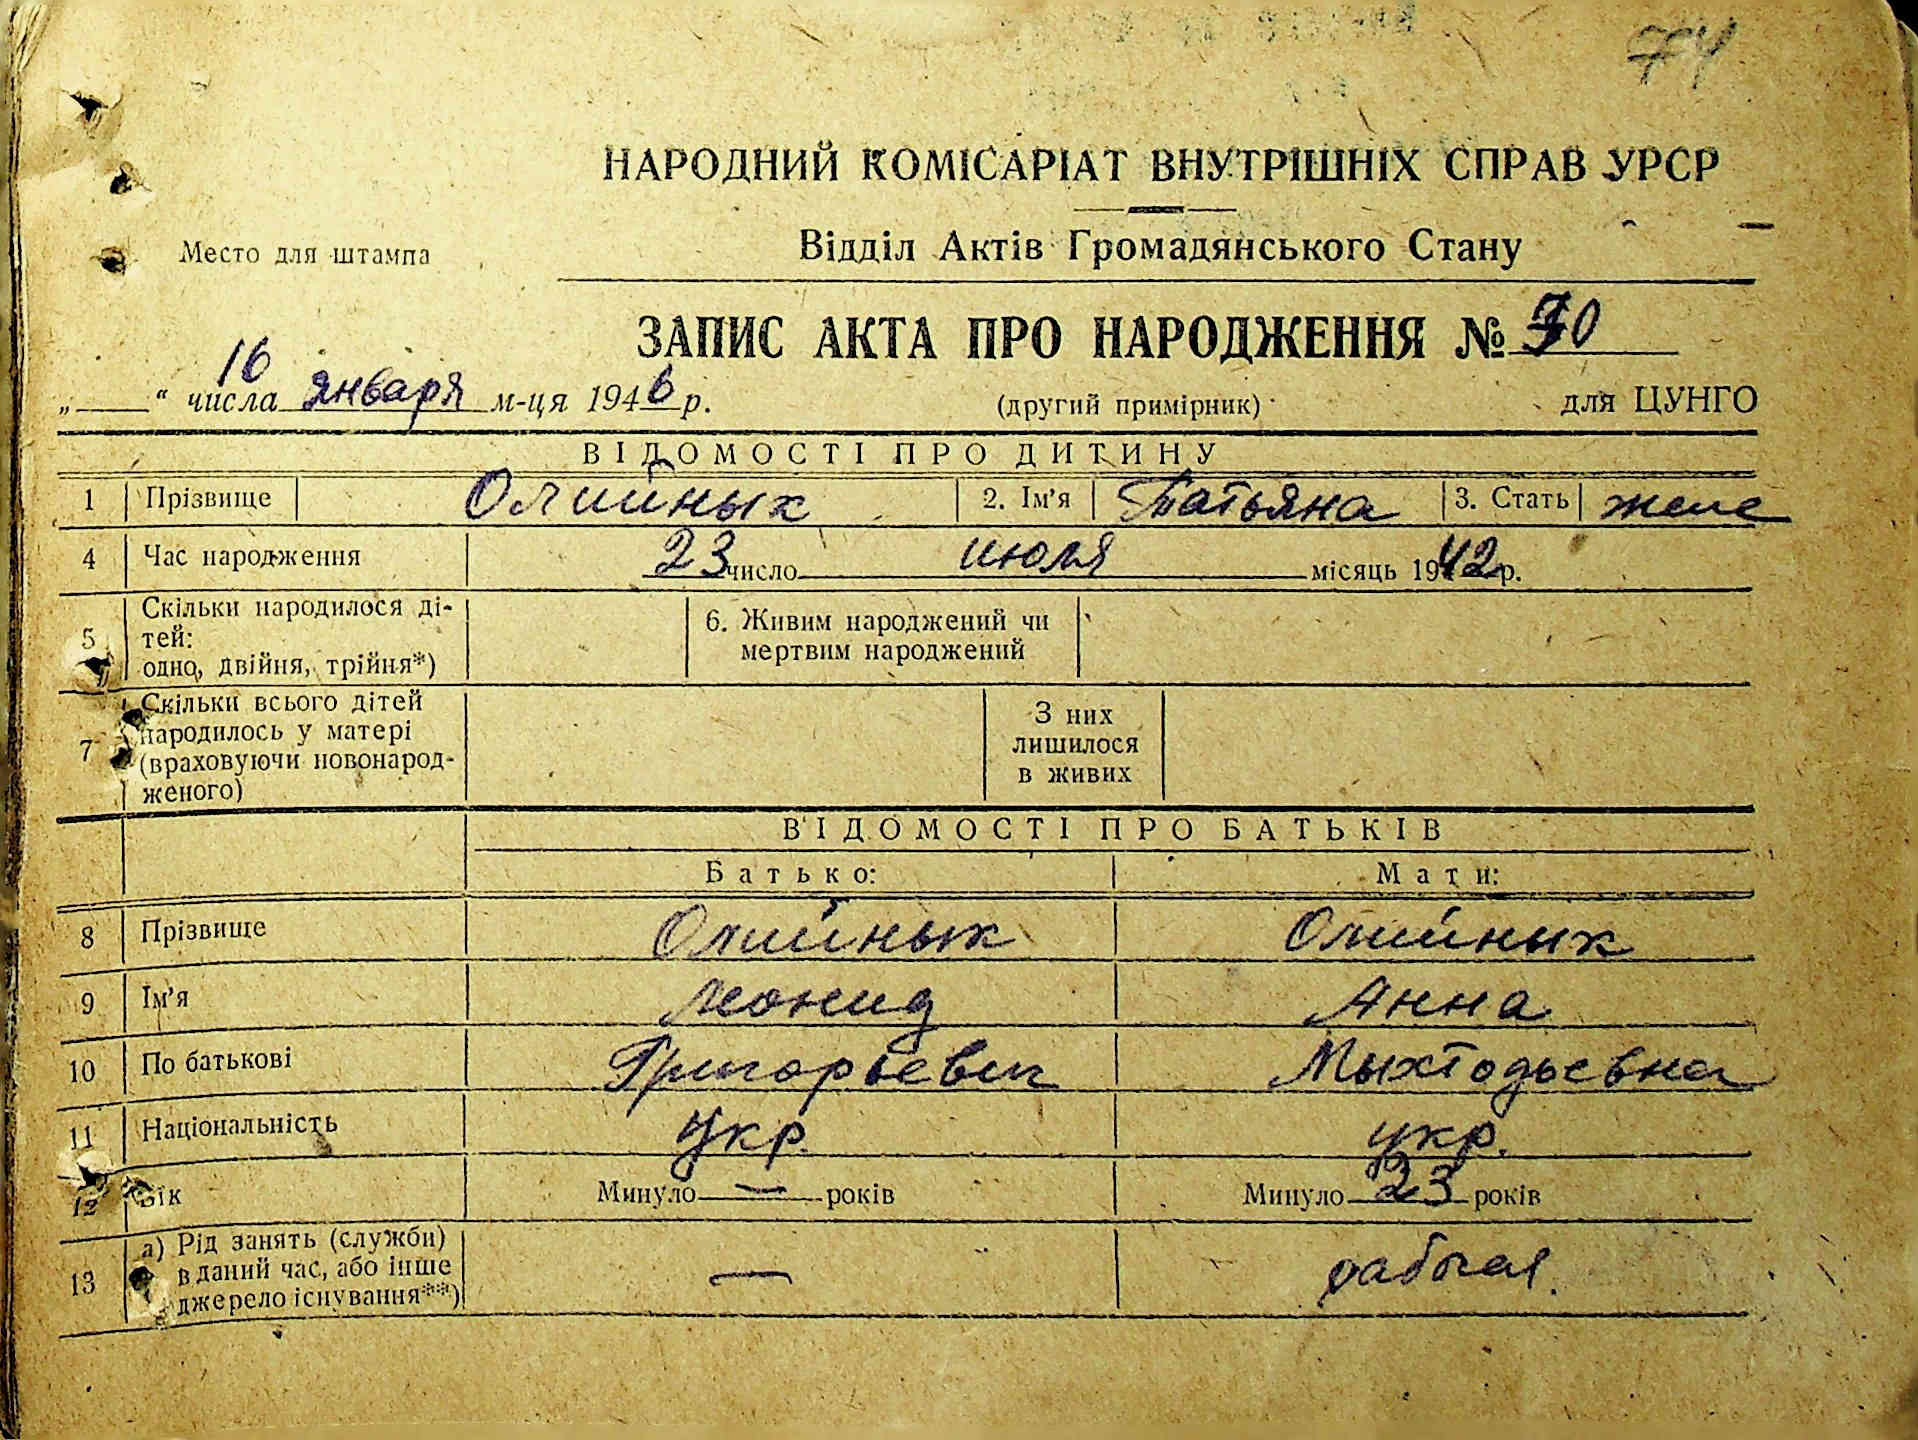 74
НАРОДНИЙ КОМІСАРІАТ ВНУТРІШНІХ СПРАВ УРСР
Место для штампа
Відділ Актів Громадянського Стану
ЗАПИС АКТА ПРО НАРОДЖЕННЯ № 70
„ 16 “ числа января м-ця 1946 р. (другий примірник) для ЦУНГО
ВІДОМОСТІ ПРО ДИТИНУ
1 Прізвище Олийнык 2. Ім'я Татьяна 3. Стать жене
4 Час народження 23 число июля місяць 1942 р.
5 Скільки народилося ді-
тей:
одно, двійня, трійня*)
6. Живим народжений чи
мертвим народжений
7 Скільки всього дітей
народилось у матері
(враховуючи новонарод-
женого)
З них
лишилося
в живих
ВІДОМОСТІ ПРО БАТЬКІВ
Батько: Мати:
8 Прізвище Олийнык Олийнык
9 Ім'я Леонид Анна
10 По батькові Григорьевич
11 Національність Укр. укр.
12 Вік Минуло — років Минуло 23 років
13 а) Рід занять (служби)
в даний час, або інше
джерело існування**)
— рабочая.